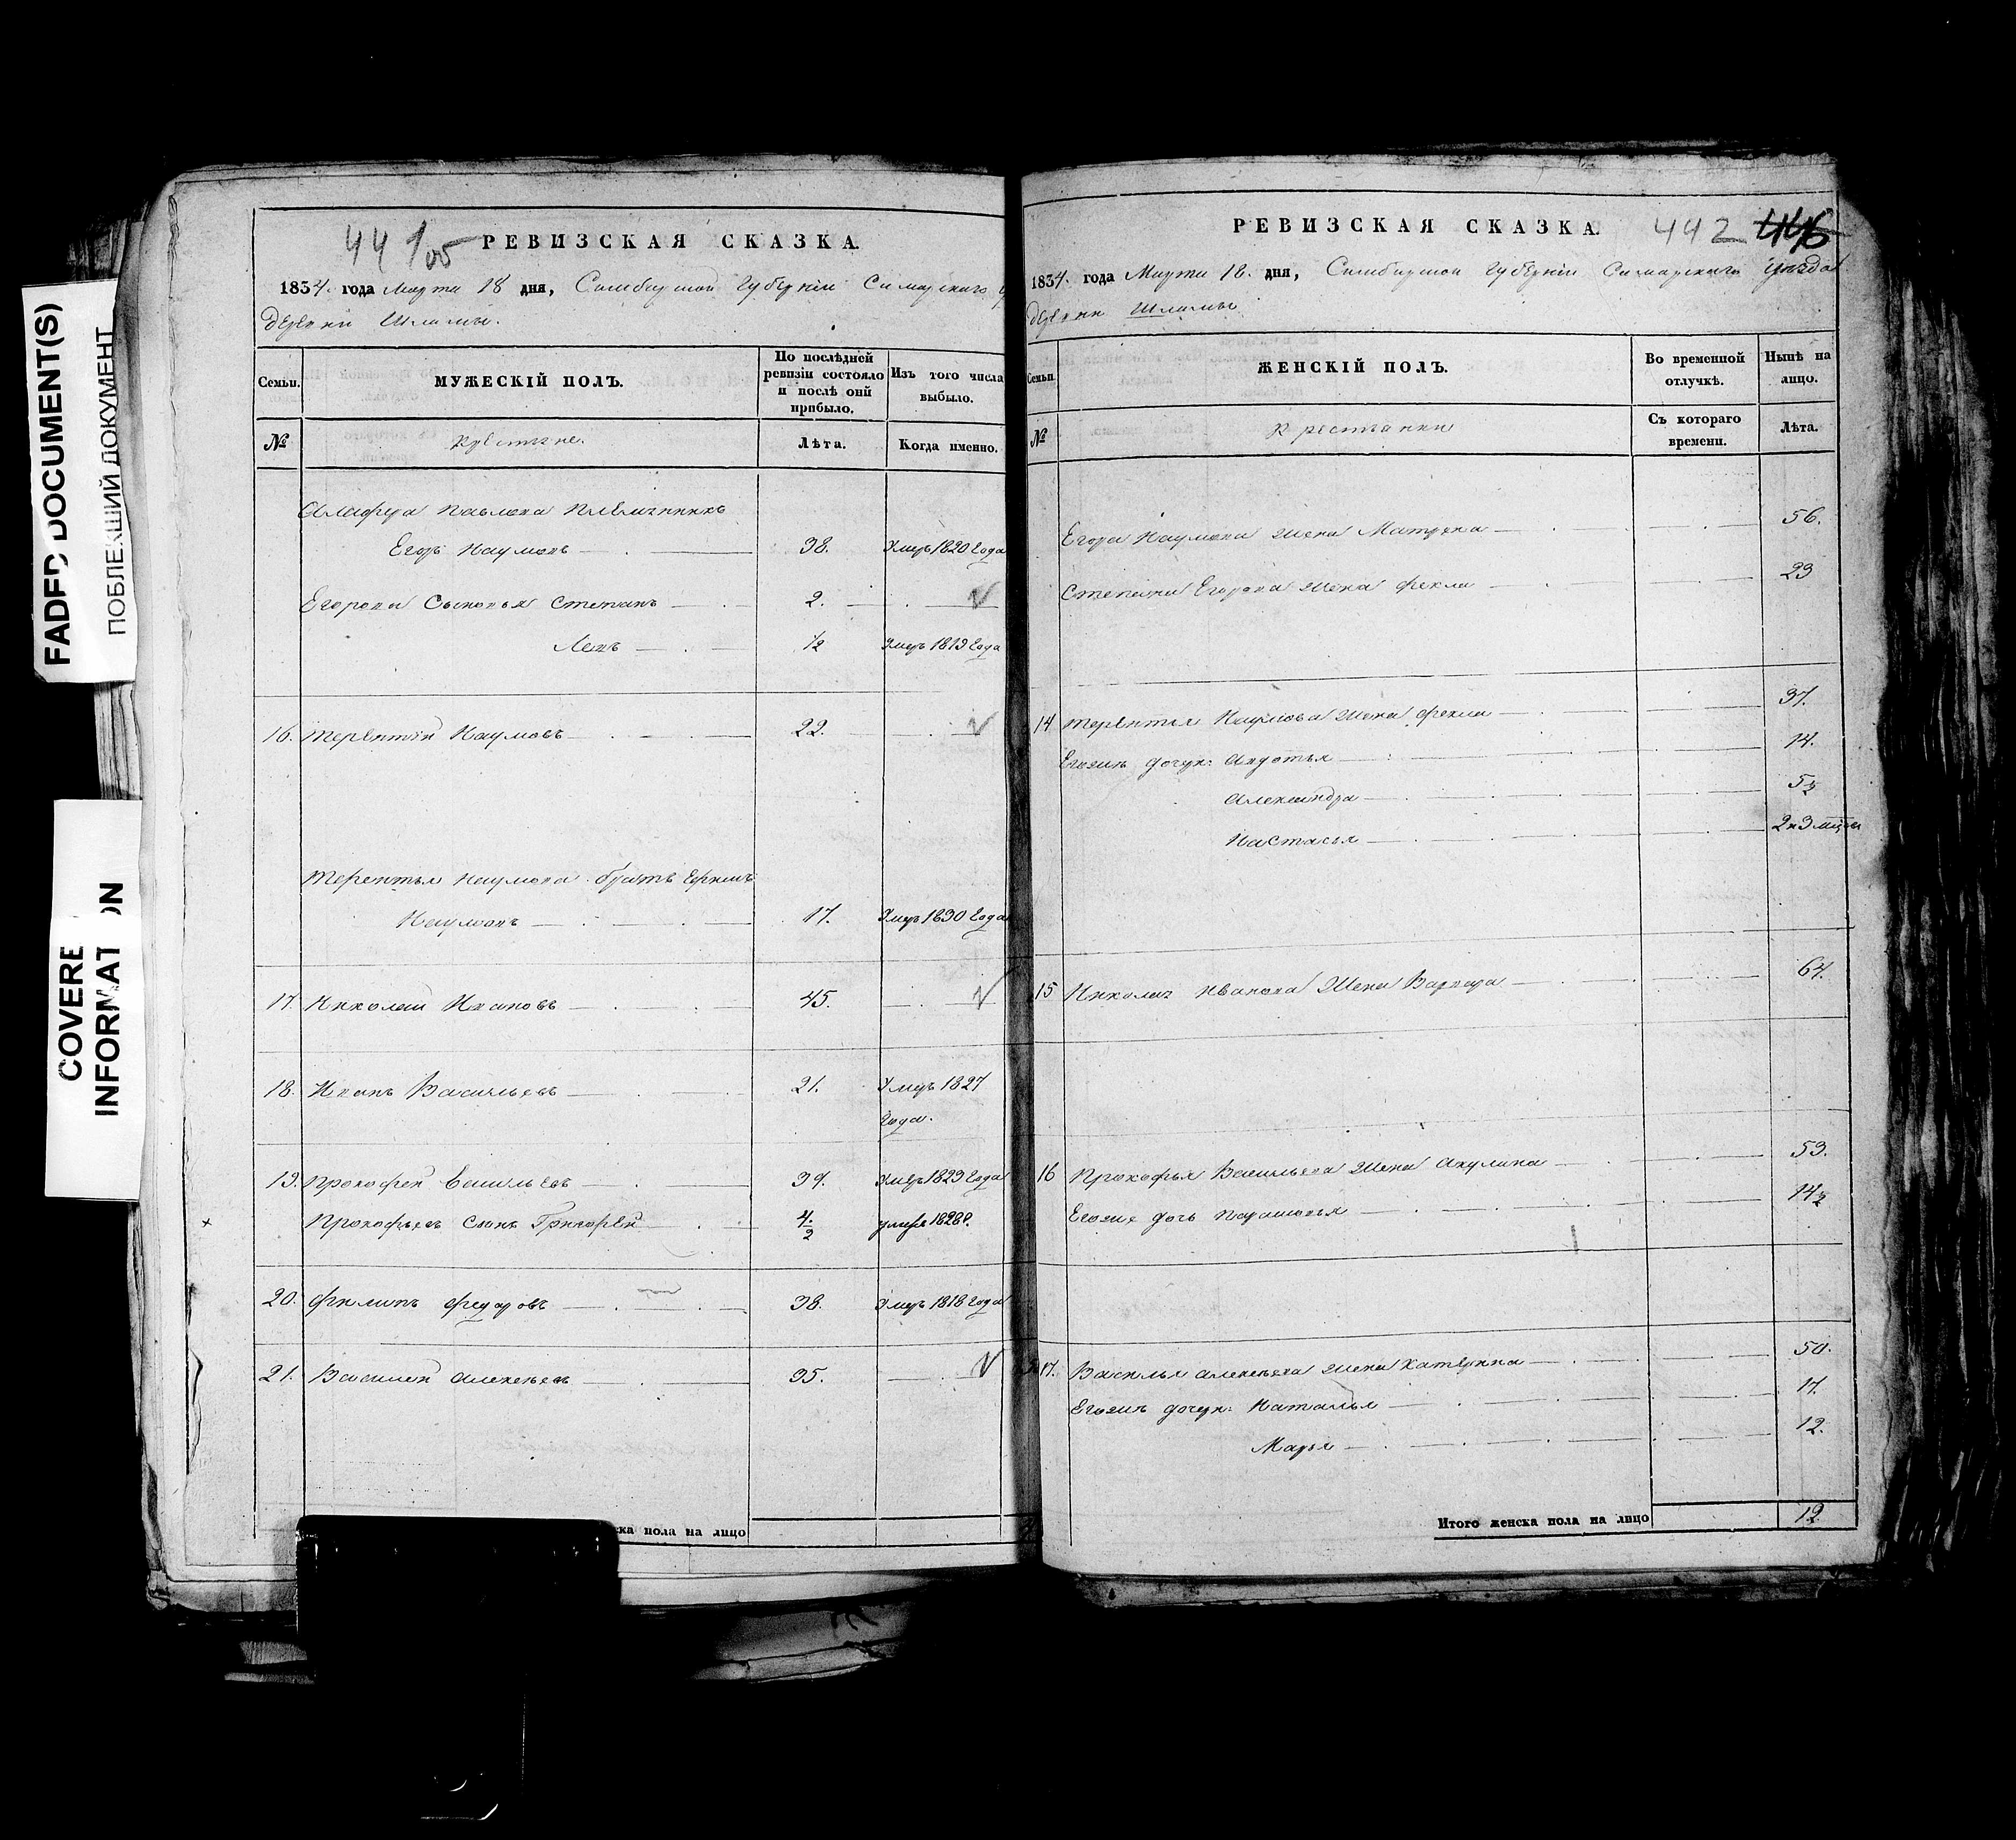 FADED DOCUMENT(S)
ПОБЛЕКШИЙ ДОКУМЕНТ
COVERE
INFORMAT ON
44 1/05
РЕВИЗСКАЯ СКАЗКА.
1834. года Марта 18 дня, Симбирской Губернии Самарского
деревни Шламы.
Семьи.
МУЖЕСКІЙ ПОЛЪ.
По послѣдней ревизіи состояло и послѣ оній прибыло.
Изъ того числа выбыло.
№
Крестьяне.
Лѣта.
Когда именно.
Павлова племянникъ
Егоръ Наумовъ 38. Умеръ 1820 Года
Егорова Сыновья Степанъ 2.
Левъ 1/2 Умеръ 1819 Года
16. Терентій Наумовъ 22.
Терентья Наумова братъ
Наумовъ 17. Умеръ 1830 Года
17. Николай Ивановъ 45.
18. Иванъ Васильевъ 21. Умеръ 1827
Года.
19. Прокофей Васильевъ 39. Умеръ 1829 Года
Прокофьевъ Сынъ Григорей 4/2 умеръ 1828 г.
20. Филипъ Федоровъ 38. Умеръ 1818 Года
21. Василей Алексеевъ 35.
ска пола на лицо
РЕВИЗСКАЯ СКАЗКА.
442
446
1834. года Марта 18. дня, Симбирской Губерніи Самарского уѣзда
деревни Шламы
Семьи.
ЖЕНСКІЙ ПОЛЪ.
Во временной отлучкѣ.
Нынѣ на лицо.
№
Крестьянки
Съ котораго времени.
Лѣта.
Егора Наумова жена Матрена 56.
Степана Егорова жена Фекла 23
14 Терентья Наумова жена Фекла 37.
Егожъ дочери: Авдотья 14.
Александра 5 1/2
Настасья 2 и 3 мцы
15 Николая Иванова жена Варвара 64.
16 Прокофья Васильева жена Акулина 53.
Егоже дочь Парасковья 14 1/2
17. Василья Алексеева жена Катерина 50.
Егожъ дочери: Наталья 17.
Марья 12.
Итого женска пола на лицо 12